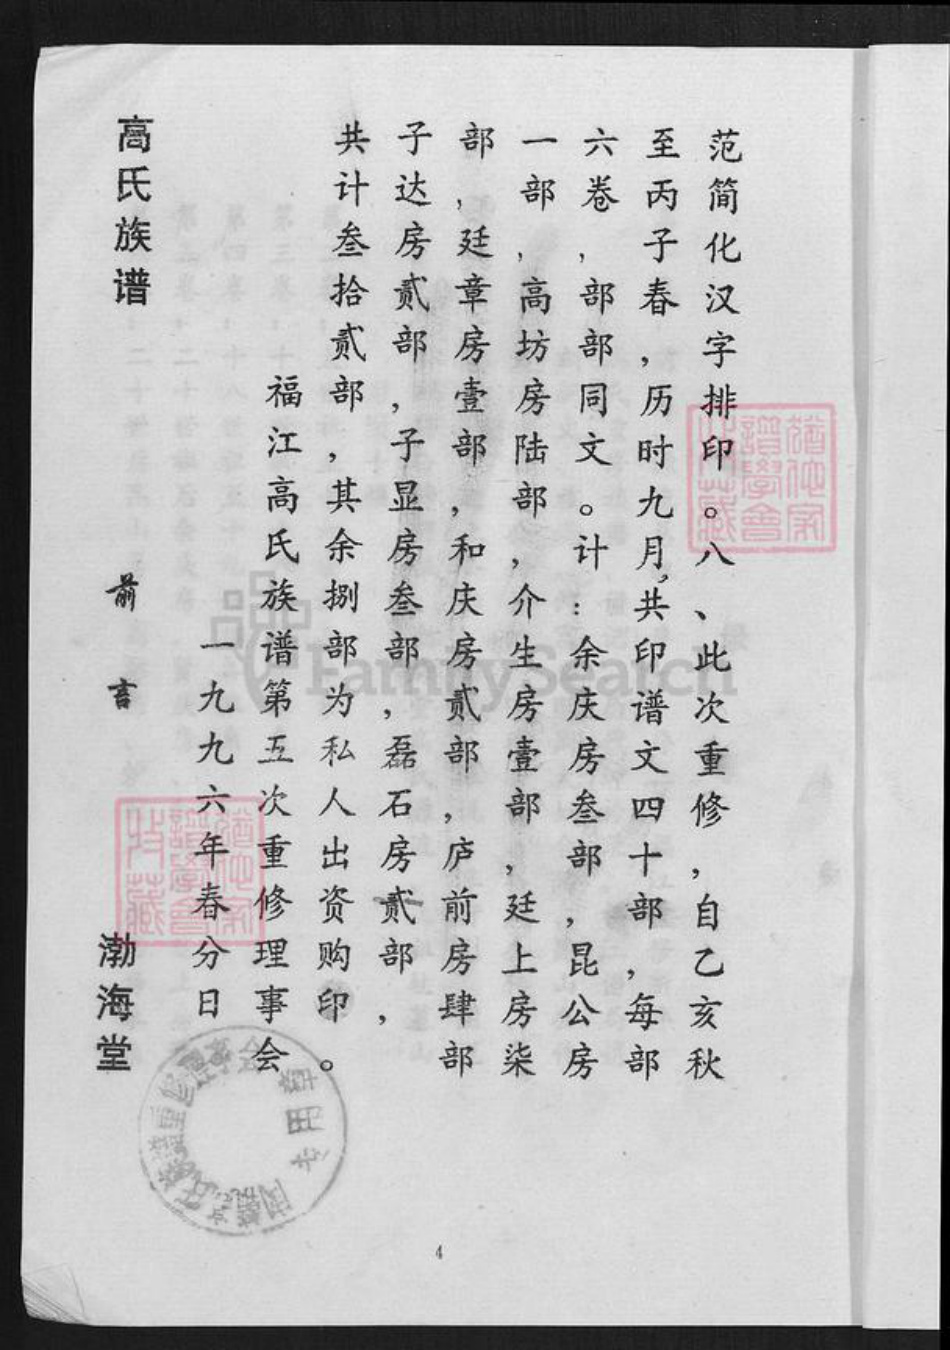 范简化汉字排印。八、此次重修，自乙亥秋
至丙子春，历时九月，共印谱文四十部，每部
六卷，部部同文。计：余庆房叁部，昆公房
一部，高坊房陆部，介生房壹部，廷上房柒
部，廷章房壹部，和庆房贰部，庐前房肆部
子达房贰部，子显房叁部，磊石房贰部，
共计叁拾贰部，其余捌部为私人出资购印。
福江高氏族谱第五次重修理事会
一九九六年春分日
高氏族谱
前言
渤海堂
专用章
4
FamilySearch